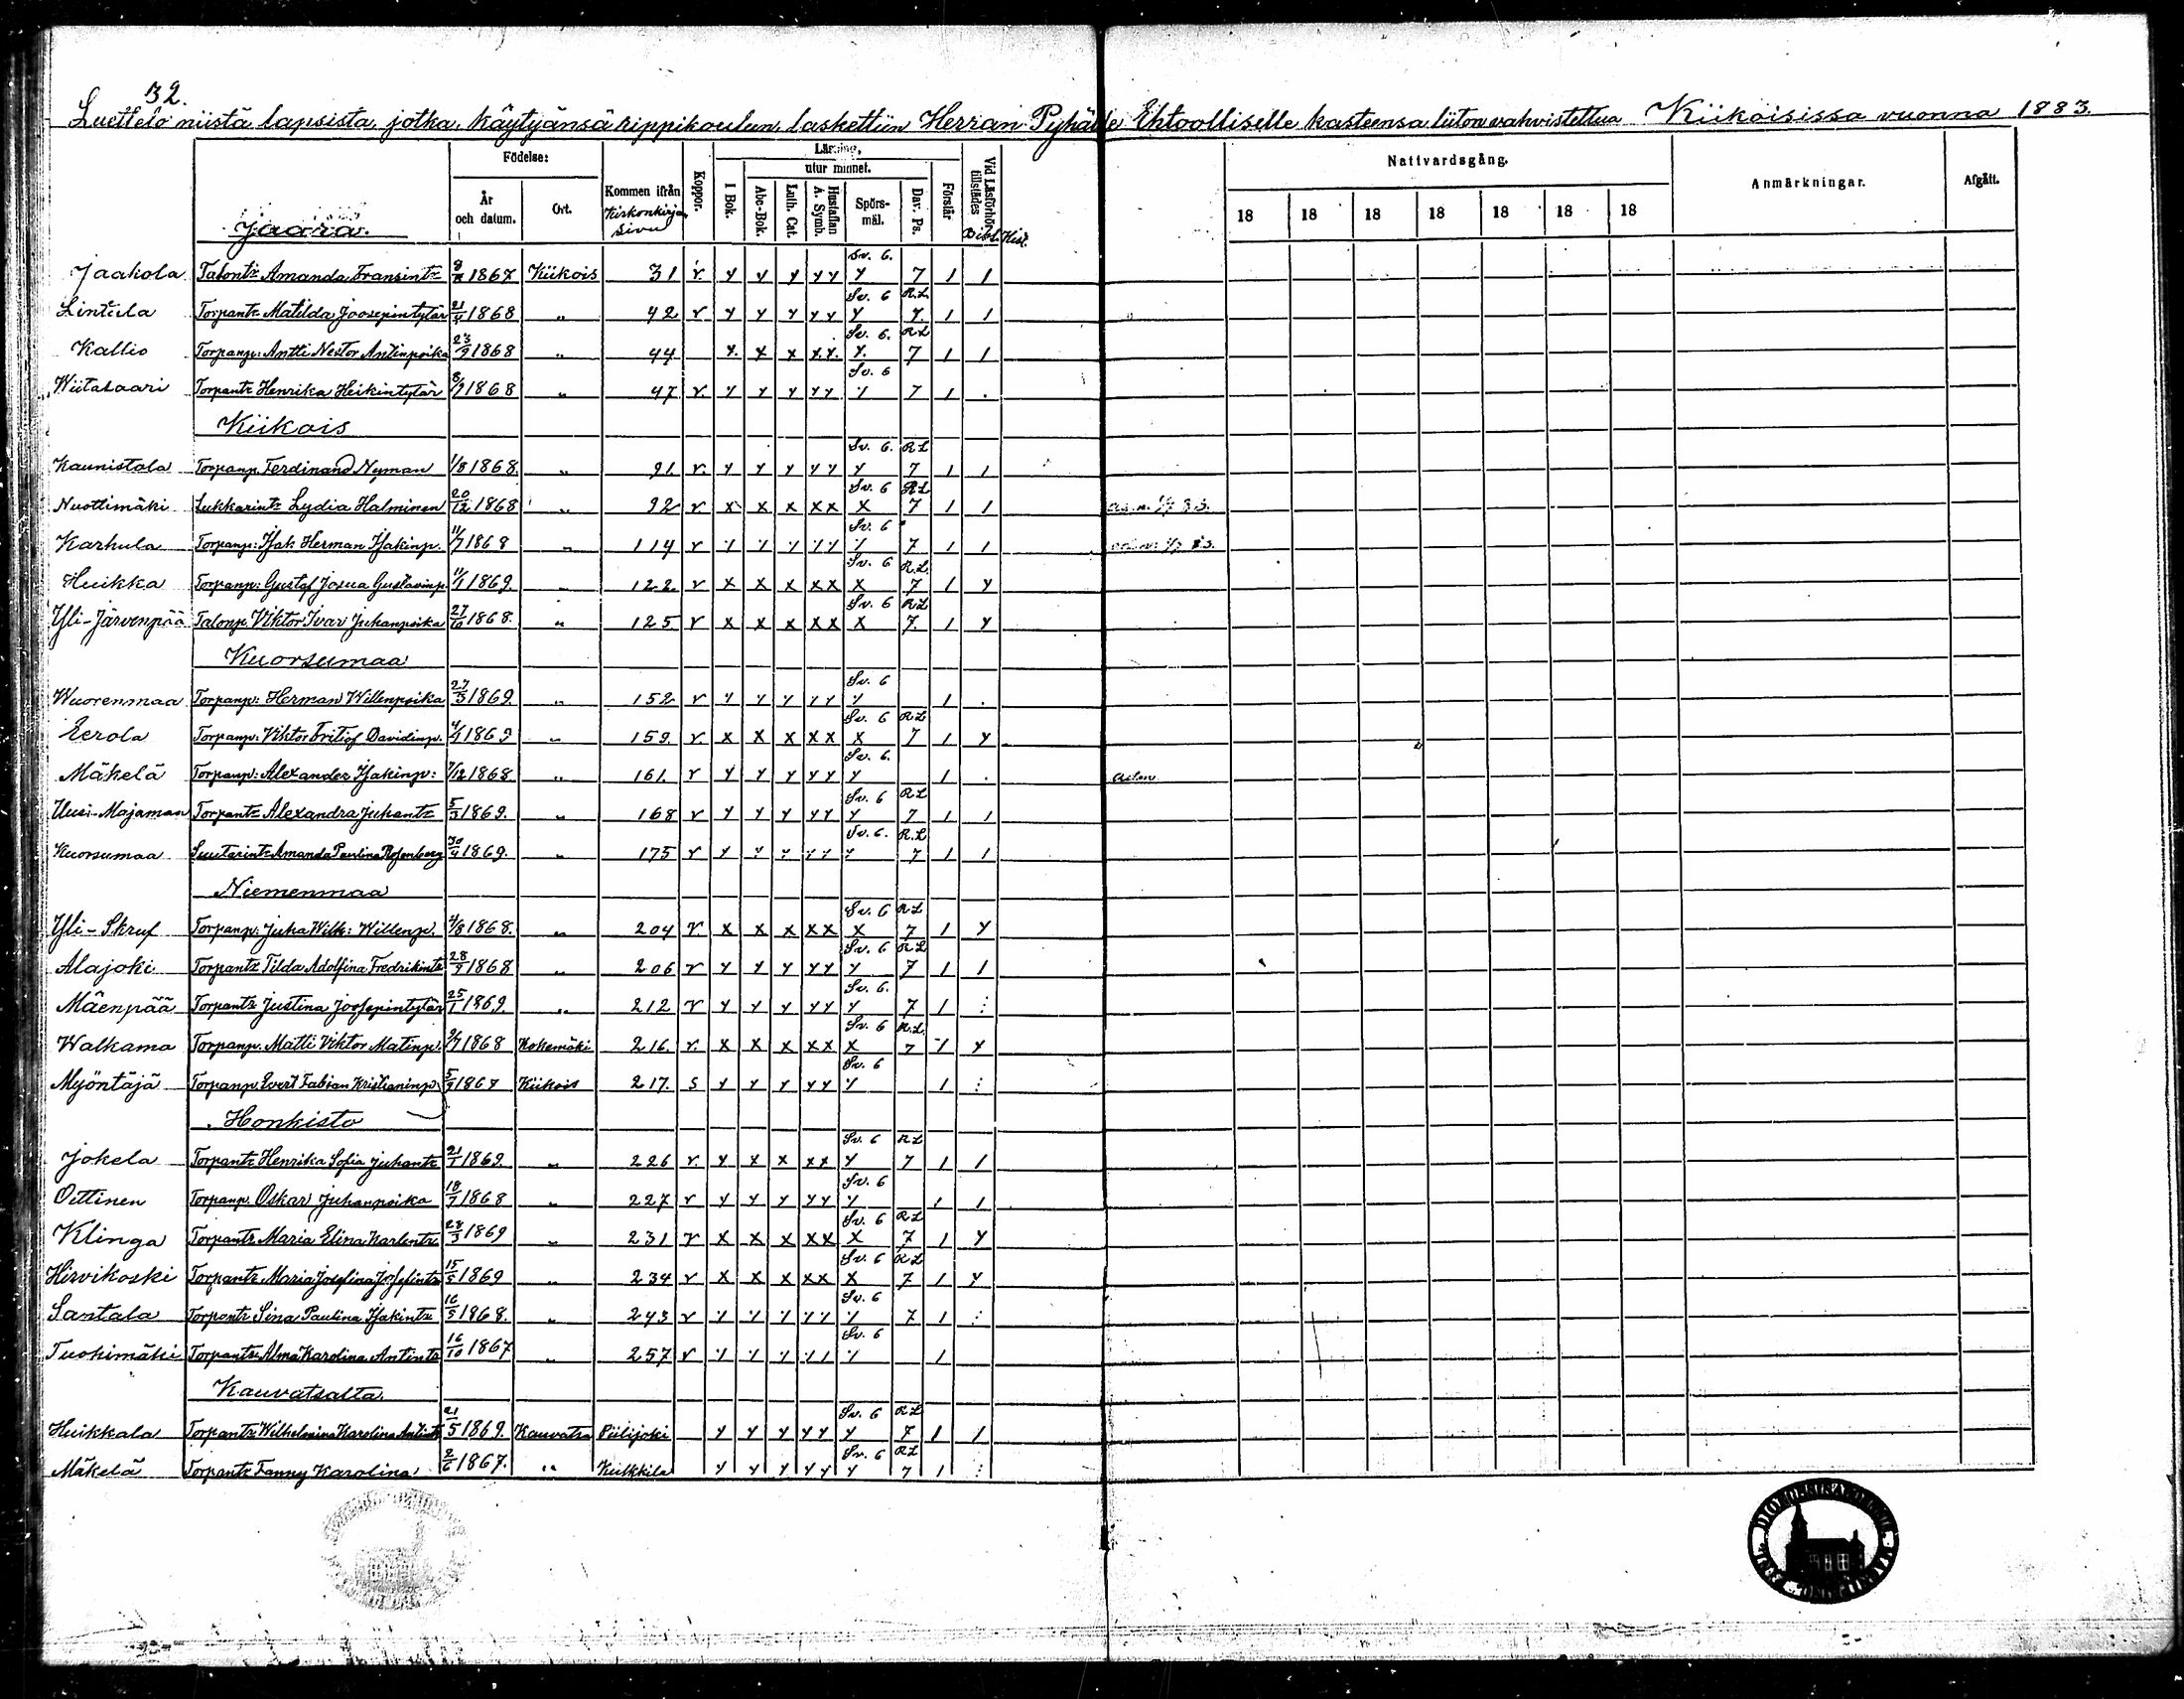 32.
Luettelo niistä lapsista, jotka, käytyänsä rippikoulun, laskettiin Herran Pyhälle Ehtoolliselle kasteensa liiton vahvistettua Kiikoisissa vuonna 1883.
Födelse: Kommen ifrån Kirkonkirja sivu Koppor. Läsning, Förstår Vid Läsförhör tillstädes Bibl. Hist. Nattvardsgång. Anmärkningar. Afgått.
År och datum. Ort. I Bok. utur minnet.
Abc-Bok. Luth. Cat. Hustaflan A. Symb. Spörsmål. Dav. Ps. 18 18 18 18 18 18 18
Jaara.
Jaakola Talontr Amanda Fransintr 1867 Kiikois 31 r y y y y y Sv. 6. y 7 1 1
Lintula Torpantr Matilda Joosepintytär 21/4 1868 " 42 r y y y y y Sv. 6 y R.L. 7. 1 1
Kallio Torpanp: Antti Nestor Antinpoika 23/9 1868 " 44 x. x x x.x. Sv. 6. x. RL 7 1 1
Wiitasaari Torpantr Henrika Heikintytär 8/9 1868 " 47 r. y y y y y Sv. 6 y 7 1 .
Kiikois
Kaunistola Torpanp. Ferdinand Nyman 1/8 1868. " 91 r. y y y y y Sv. 6. y RL 7 1 1
Nuottimäki Lukkarintr Lydia Halminen 20/12 1868 " 92 r x x x x x Sv. 6 x RL 7 1 1
Karhula Torpanp: Isak Herman Isakinp. 11/7 1868 " 114 r y y y y y Sv. 6 y 7 1 1
Huikka Torpanp: Gustaf Josua Gustavinp. 11/1 1869. " 122. r x x x x x Sv. 6 x R.L. 7 1 y
Yli-Järvenpää Talonp. Viktor Ivar Juhanpoika 27/10 1868. " 125 r x x x x x Sv. 6 x RL 7. 1 y
Kuorsumaa
Wuorenmaa Torpanp: Herman Willenpoika 27/3 1869. " 152 r y y y y y Sv. 6 y 1 .
Eerola Torpanp: Viktor Fritiof Davidinp. 4/1 1869 " 159. r x x x x x Sv. 6 x RL 7 1 y
Mäkelä Torpanp: Alexander Isakinp: 7/12 1868 " 161. r y y y y y Sv. 6. y 1 .
Uusi-Majamaa Torpantr Alexandra Juhantr 5/3 1869. " 168 r y y y y y Sv. 6 y RL 7 1 1
Kuorsumaa Suutarintr Amanda Paulina Rosenberg 30/4 1869. " 175 r y y y y y Sv. 6. y R.L 7 1 1
Niemenmaa
Yli-Skruf Torpanp: Juha Wilh: Willenp. 4/8 1868. " 204 r x x x x x Sv. 6 x RL 7 1 y
Alajoki Torpantr Tilda Adolfina Fredrikintr 28/9 1868 " 206 r y y y y y Sv. 6 y RL 7 1 1
Mäenpää Torpantr Justina Joosepintytär 25/1 1869. " 212 r y y y y y Sv. 6. y 7 1 :
Walkama Torpanp. Matti Viktor Matinp. 9/7 1868 Kokemäki 216. r. x x x x x Sv. 6 x R.L. 7 1 y
Myöntäjä Torpanp. Evert Fabian Kristianinp. 5/9 1867 Kiikois 217. s y y y y y Sv. 6 y 1 :
Honkisto
Jokela Torpantr Henrika Sofia Juhantr 21/1 1869. " 226 r. y x x x x Sv. 6 y RL 7 1 1
Oittinen Torpanp. Oskar Juhanpoika 18/7 1868 " 227 r y y y y y Sv. 6 y 1 1
Klinga Torpantr Maria Elina Karlentr. 28/3 1869 " 231 r x x x x x Sv. 6 x RL 7 1 y
Hirvikoski Torpantr Maria Josefina Josefintr 15/5 1869 " 234 r x x x x x Sv. 6 x RL 7 1 y
Santala Torpantr Sina Paulina Isakintr 16/5 1868. " 243 r y y y y y Sv. 6 y 7 1 :
Tuokimäki Torpantr Alma Karolina Antintr 16/10 1867 " 257 r y y y y 1 Sv. 6 y 1
Kauvatsalta.
Huikkala Torpantr Wilhelmina Karolina Antintr 21/5 1869. Kauvatsa Piilijoki y y y y y Sv. 6 y RL 7 1 1
Mäkelä Torpantr Fanny Karolina 2/6 1867. " Kulkkila y y y y y Sv. 6 y RL 7 1 :